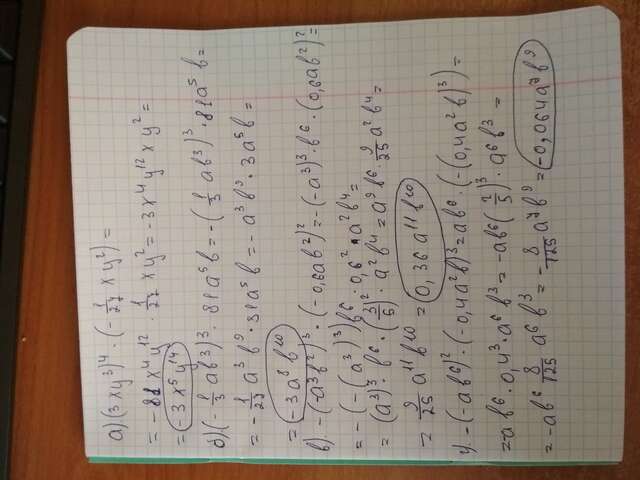 а) (3xy³)⁴ · (-1/27 xy²) =
= -81 x⁴y¹² 1/27 xy² = -3x⁴y¹² xy² =
= -3x⁵y¹⁴
б) (-1/3 ab³)³ · 81a⁵b = -(1/3 ab³)³ · 81a⁵b =
= -1/27 a³b⁹ · 81a⁵b = -a³b⁹ · 3a⁵b =
= -3a⁸b¹⁰
в) -(-a³b²)³ · (-0,6ab²)² = -(-a³)³ · b⁶ · (0,6ab²)² =
= -(-(a³)³)b⁶ · 0,6² · a²b⁴ =
= (a³)³ · b⁶ · (3/5)² · a²b⁴ = a⁹b⁶ · 9/25 a²b⁴ =
= 9/25 a¹¹b¹⁰ = 0,36a¹¹b¹⁰
= ab⁶ · 0,4³ · a⁶b³ = -ab⁶(2/5)³ · a⁶b³ =
= -ab⁶ 8/125 a⁶b³ = -8/125 a⁷b⁹ = -0,064a⁷b⁹